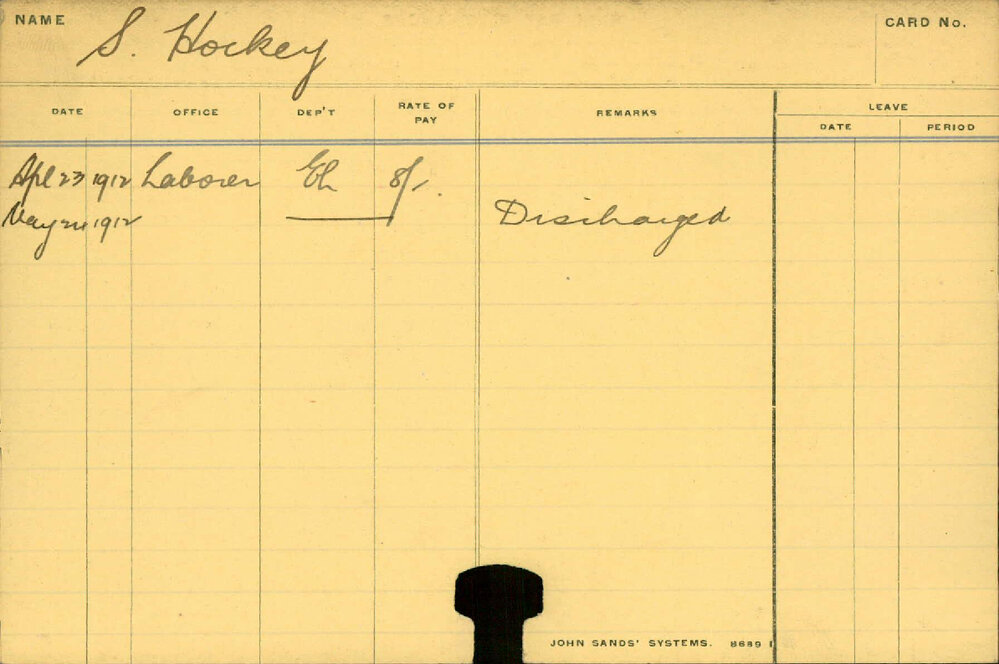 NAME S. Hockey CARD No.
DATE OFFICE DEP'T RATE OF PAY REMARKS LEAVE
DATE PERIOD
Apl 23 1912 Laborer 8/-.
May 24 1912 Discharged
JOHN SANDS' SYSTEMS. 8689